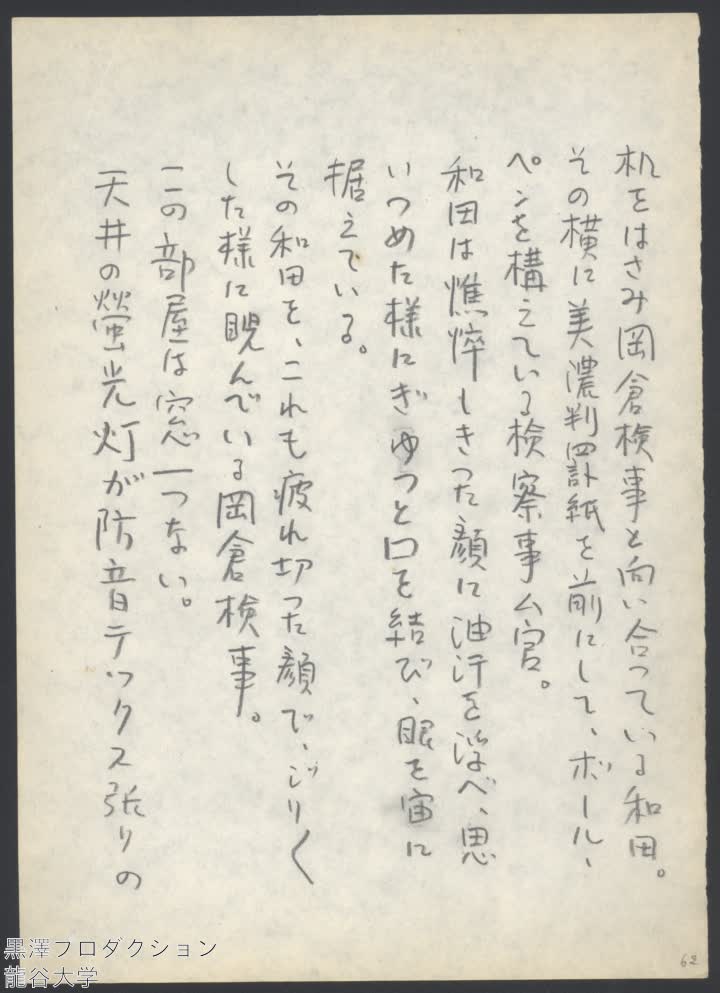 机をはさみ岡倉検事と向い合っている和田。
その横に美濃判罫紙を前にして、ボール、
ペンを構えている検察事ム官。
和田は憔悴しきった顔に油汗を浮べ、思
いつめた様にぎゆつと口を結び、眼を宙に
据えている。
その和田を、これも疲れ切った顔で、じり〱
した様に睨んでいる岡倉検事。
この部屋は窓一つない。
天井の螢光灯が防音テックス張りの
62
黒澤プロダクション
龍谷大学